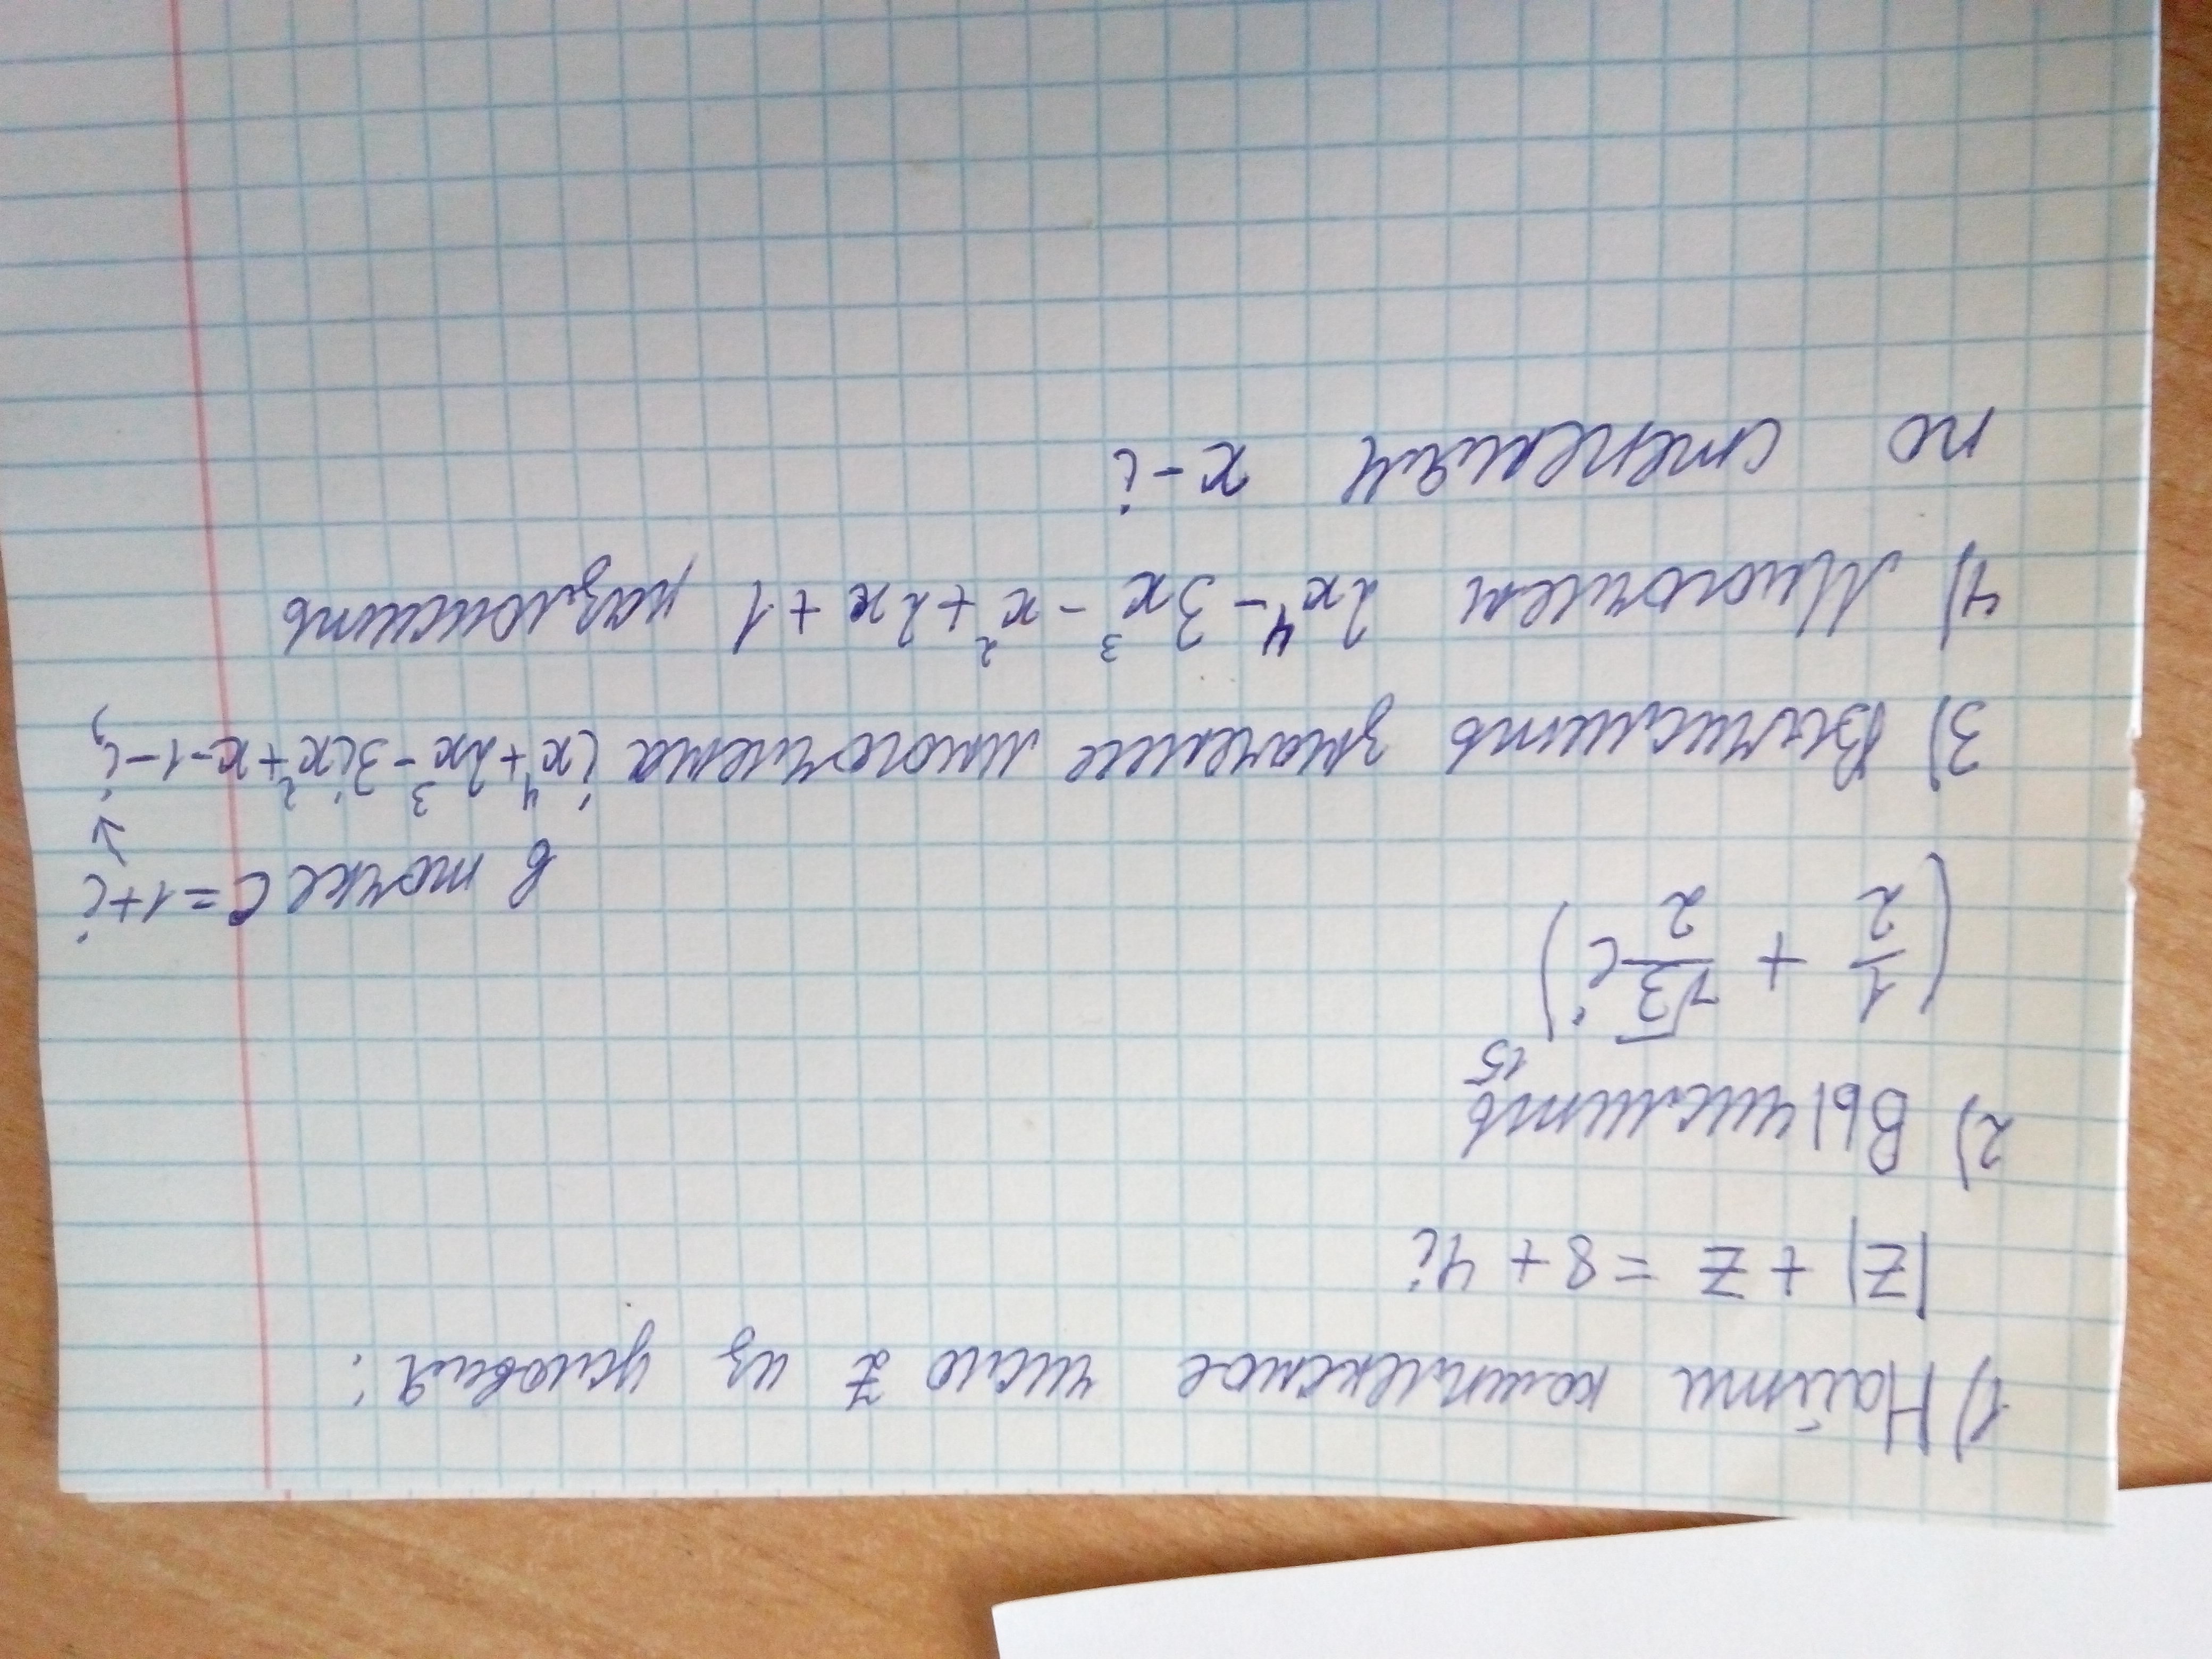 1) Найти комплексное число z из условия:
|z| + z = 8 + 4i
2) Вычислить
(1/2 + √3/2 i)^15
в точке c = 1+i
3) Вычислить значение многочлена ix⁴+2x³-3ix²+x-1-i,
4) Многочлен 2x⁴-3x³-x²+2x+1 разложить
по степеням x-i